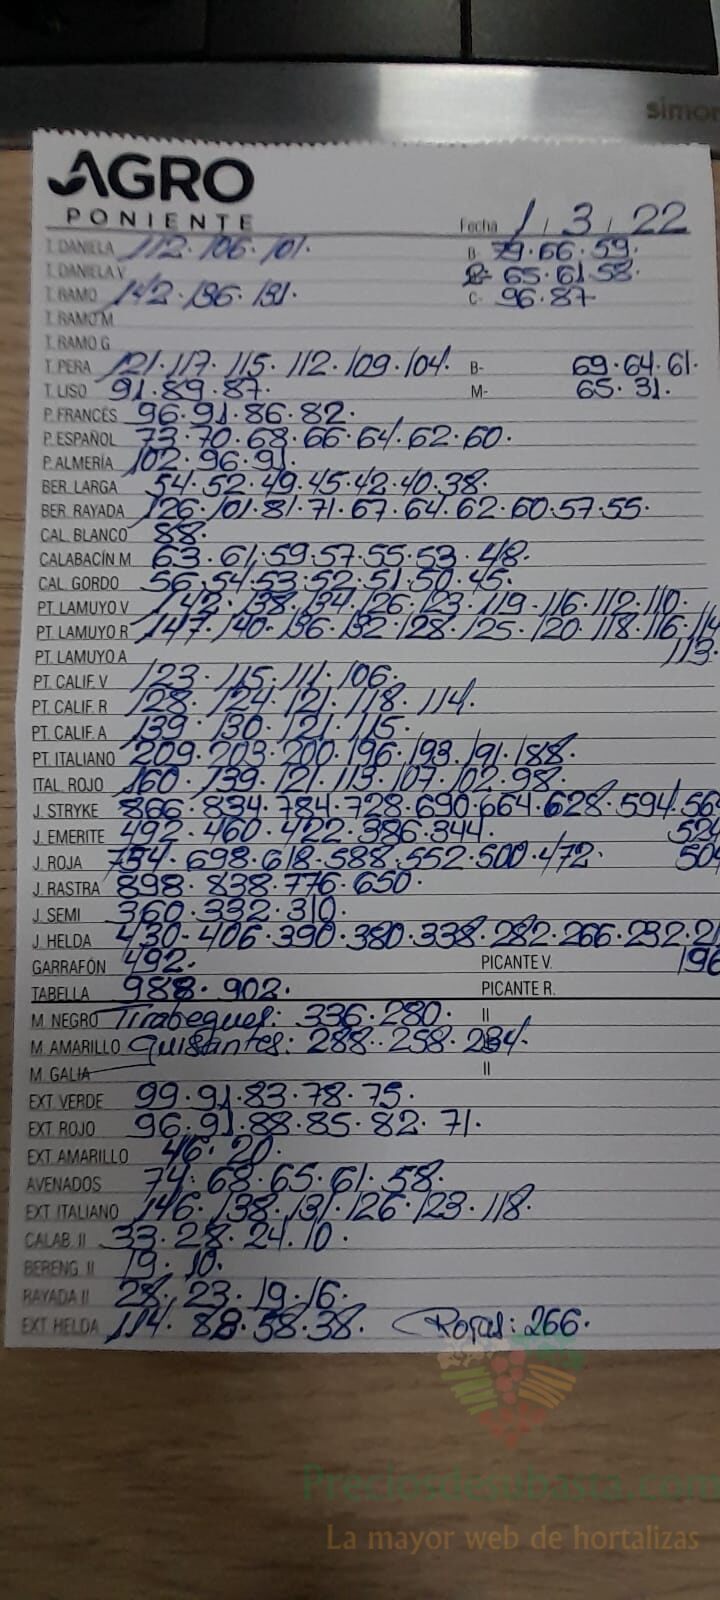 simon
AGRO
PONIENTE
Fecha 1 / 3 / 22
T. DANIELA 112. 106. 101. B 79. 66. 59.
T. DANELA V 65. 61. 58.
T. RAMO 142. 136. 131. C- 96. 87
T. RAMO M
T. RAMO G
T. PERA 121. 117. 115. 112. 109. 104. B- 69. 64. 61.
T. LISO 91. 89. 87. M- 65. 31.
P. FRANCÉS 96. 91. 86. 82.
P. ESPAÑOL 73. 70. 68. 66. 64. 62. 60.
P. ALMERÍA 102. 96. 91.
BER. LARGA 54. 52. 49. 45. 42. 40. 38.
BER. RAYADA 126. 101. 81. 71. 67. 64. 62. 60. 57. 55.
CAL. BLANCO 88.
CALABACÍN M 63. 61. 59. 57. 55. 53. 48.
CAL. GORDO 56. 54. 53. 52. 51. 50. 45.
PT. LAMUYO V 142. 138. 134. 126. 123. 119. 116. 112. 110.
PT. LAMUYO R 147. 140. 136. 132. 128. 125. 120. 118. 116. 114
PT. LAMUYO A 113.
PT. CALIF. V 123. 115. 111. 106.
PT. CALIF. R 128. 124. 121. 118. 114.
PT. CALIF. A 139. 130. 121. 115.
PT. ITALIANO 209. 203. 200. 196. 193. 191. 188.
ITAL. ROJO 160. 139. 121. 113. 107. 102. 98.
J. STRYKE 866. 834. 784. 728. 690. 664. 628. 594. 56
J. EMERITE 492. 460. 422. 386. 344. 524
J. ROJA 734. 698. 618. 588. 552. 500. 472. 504
J. RASTRA 898. 838. 776. 650.
J. SEMI 360. 332. 310.
J. HELDA 430. 406. 390. 380. 338. 282. 266. 232. 21
GARRAFÓN 492. PICANTE V. 196
TABELLA 988. 902. PICANTE R.
M. NEGRO Tirabeques: 336. 280. II
M. AMARILLO Guisantes: 288. 258. 234.
M. GALIA II
EXT. VERDE 99. 91. 83. 78. 75.
EXT. ROJO 96. 91. 88. 85. 82. 71.
EXT. AMARILLO 46. 20.
AVENADOS 74. 68. 65. 61. 58.
EXT. ITALIANO 146. 138. 131. 126. 123. 118.
CALAB. II 33. 28. 24. 10.
BERENG. II 19. 10.
RAYADA II 28. 23. 19. 16.
EXT. HELDA 114. 88. 58. 38. Rojas: 266.
Preciosdesubasta.com
La mayor web de hortalizas